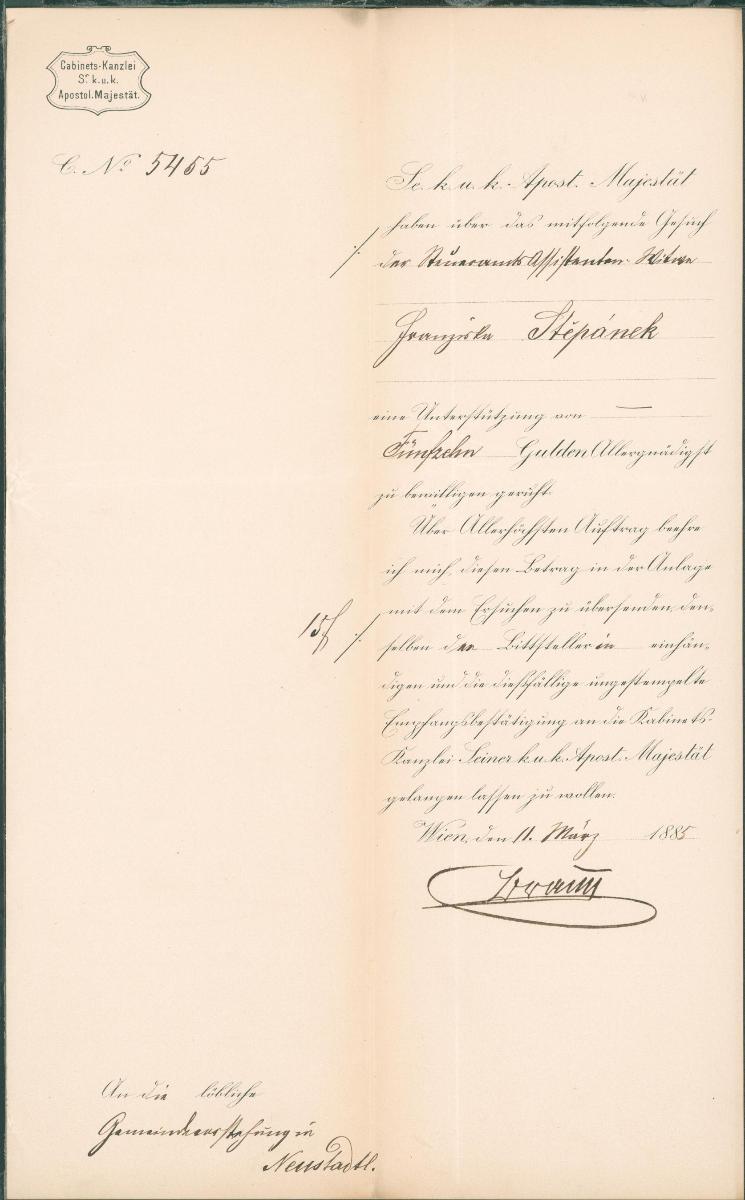 Cabinets-Kanzlei
Sr. k.u.k.
Apostol. Majestät.
C. No 5455
Se. k. u. k. Apost. Majestät
haben über das mitfolgende Gesuch
der Steueramts Assistenten-Witwe
Franziska Štěpánek
eine Unterstützung von —
Fünfzehn Gulden Allergnädigst
zu bewilligen geruht.
Über Allerhöchsten Auftrag beehre
ich mich, diesen Betrag in der Anlage
15 f ./. mit dem Ersuchen zu übersenden, den-
selben der Bittstellerin einhän-
digen und die dießfällige ungestempelte
Empfangsbestätigung an die Kabinets-
Kanzlei Seiner k. u. k. Apost. Majestät
gelangen lassen zu wollen.
Wien, den 11. März 1885
Braun
An die löbliche
Gemeindevorstehung in
Neustadtl.